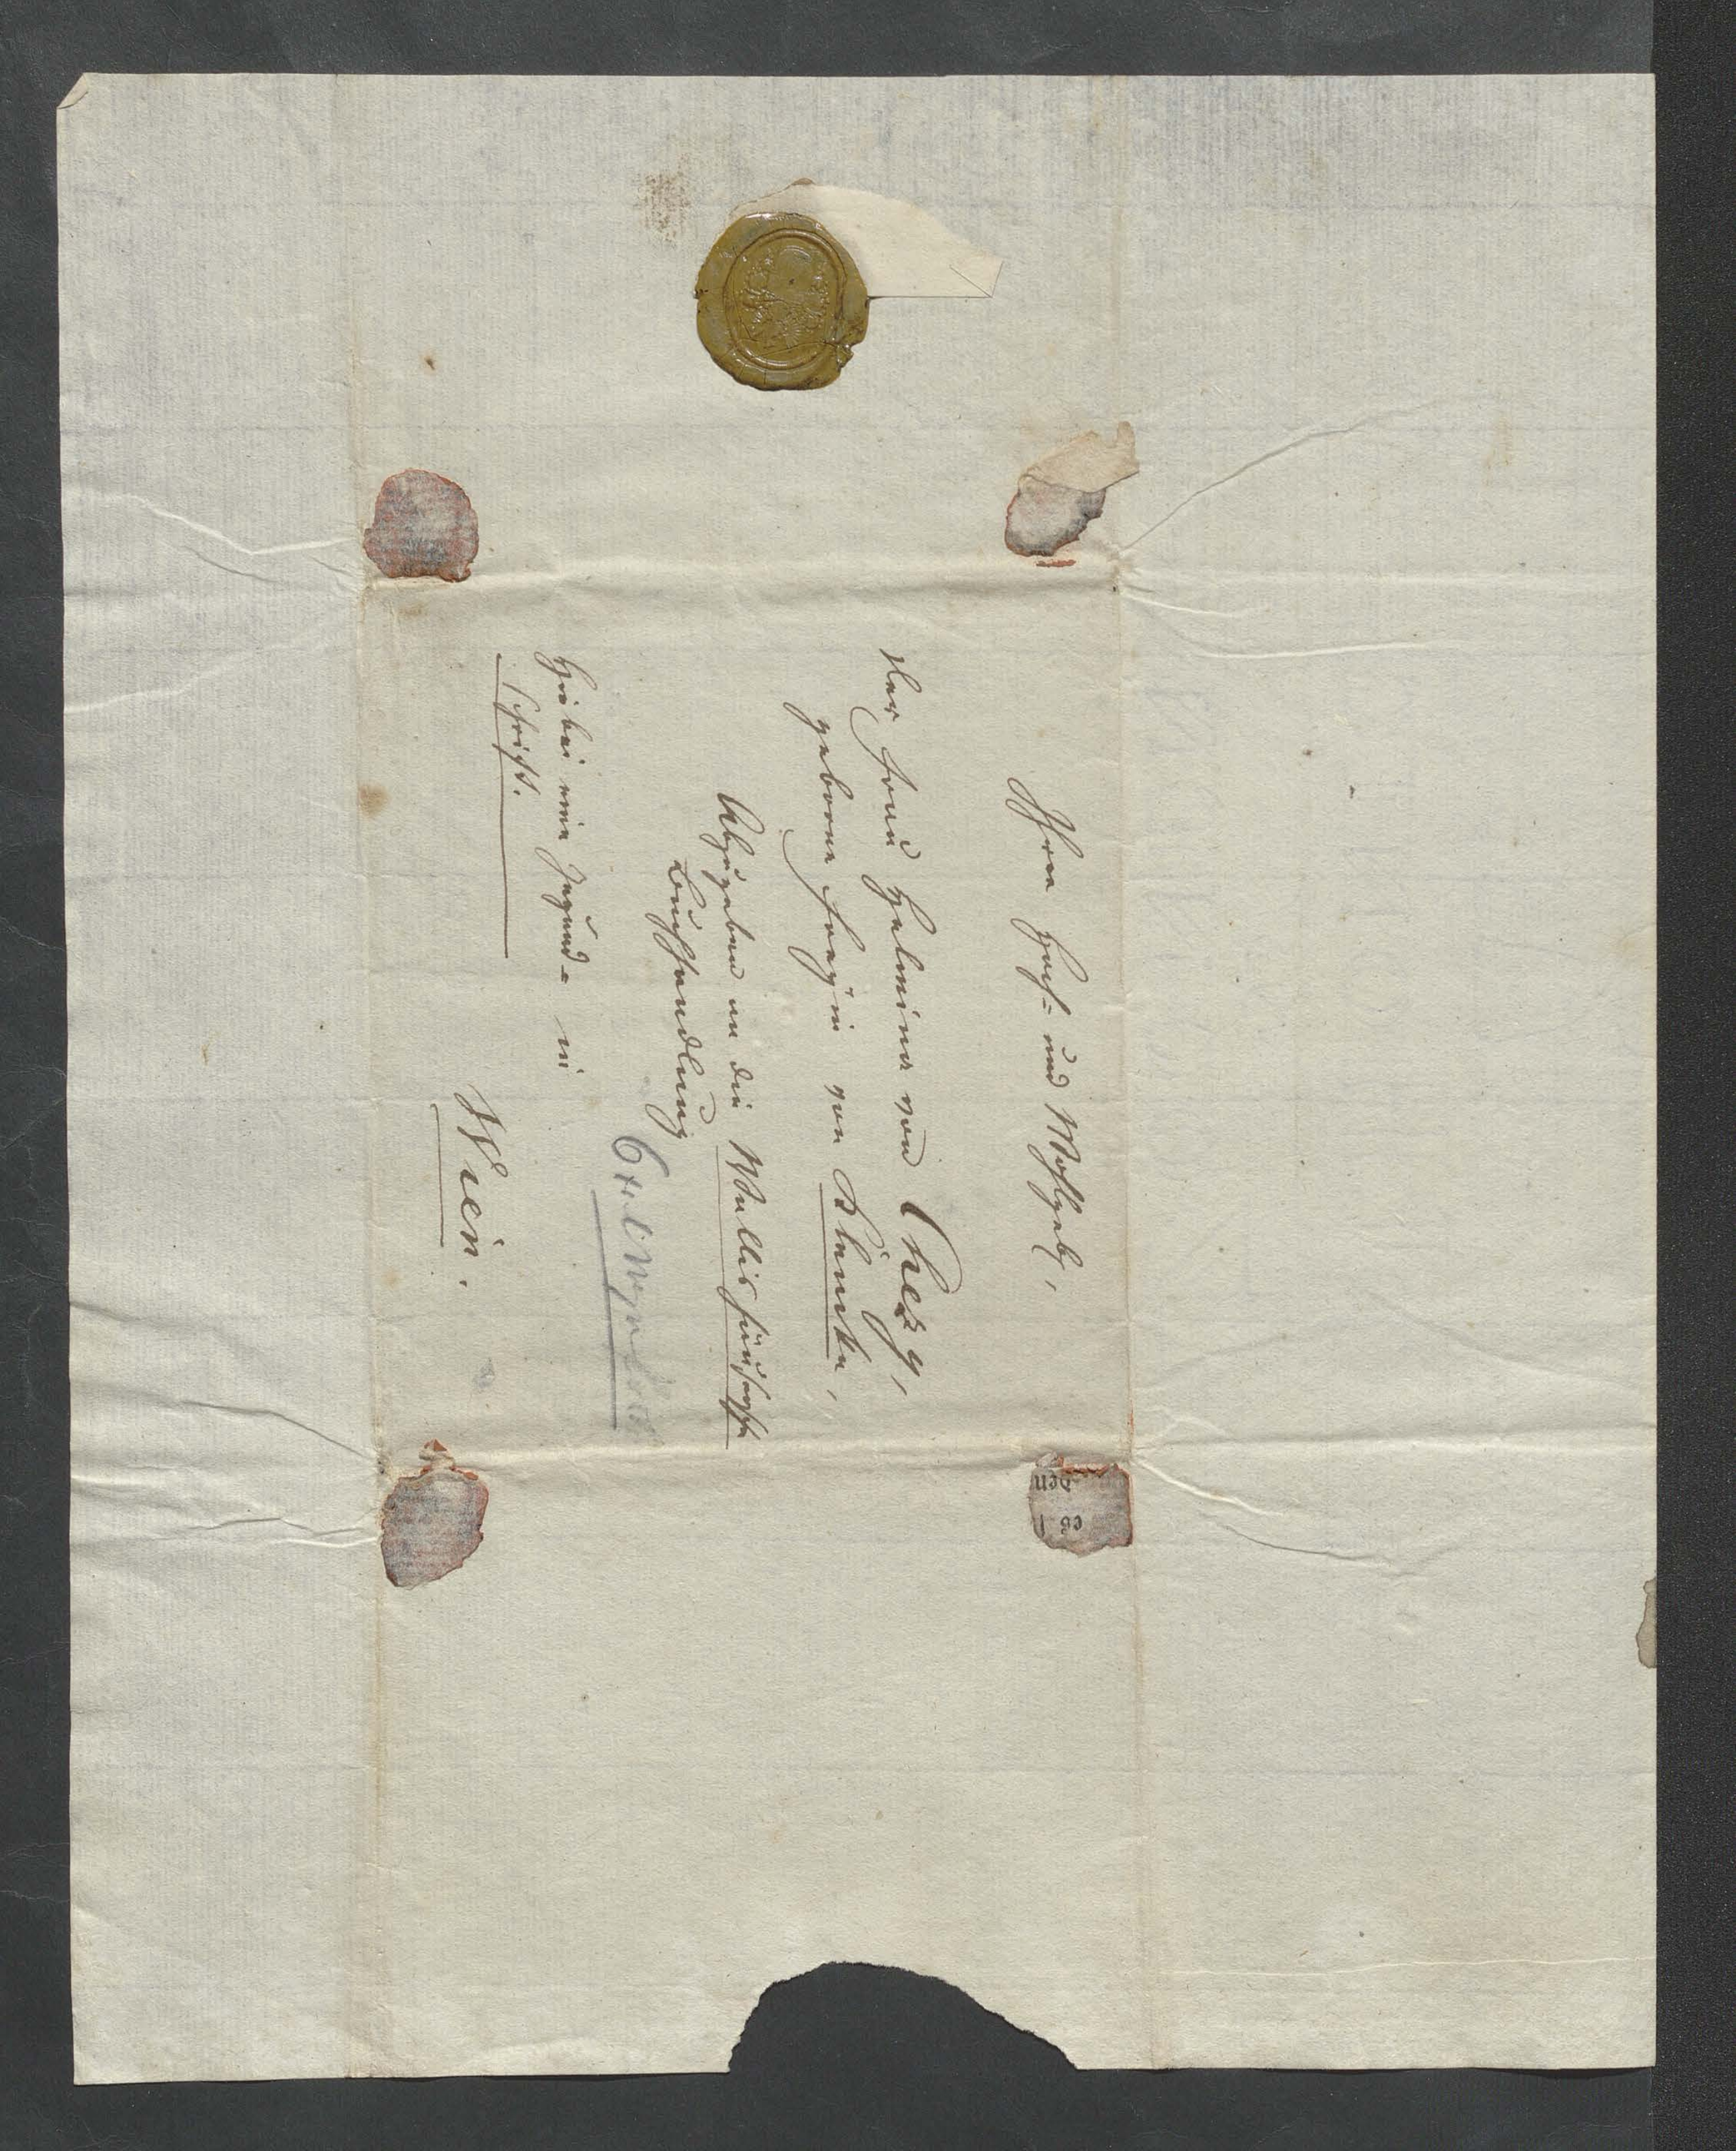 Ihrer Hoch- und Wohlgeb,
der Frau Helmina von Chezy,
geborne Freyin von Klencke,
Abzugeben an die Wallishaußersche
Buchhandlung
Hiebei eine Jugend-
schrift.
in
Wien.
den
es